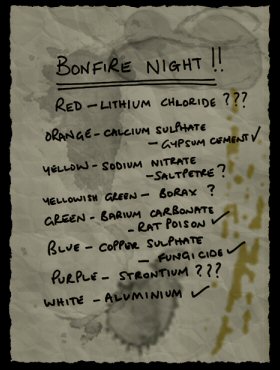 BONFIRE NIGHT !!
RED – LITHIUM CHLORIDE ???
ORANGE – CALCIUM SULPHATE
– GYPSUM CEMENT ✓
YELLOW – SODIUM NITRATE
– SALTPETRE ?
YELLOWISH GREEN – BORAX ?
GREEN – BARIUM CARBONATE
– RAT POISON ✓
BLUE – COPPER SULPHATE
– FUNGICIDE ✓
PURPLE – STRONTIUM ???
WHITE – ALUMINIUM ✓